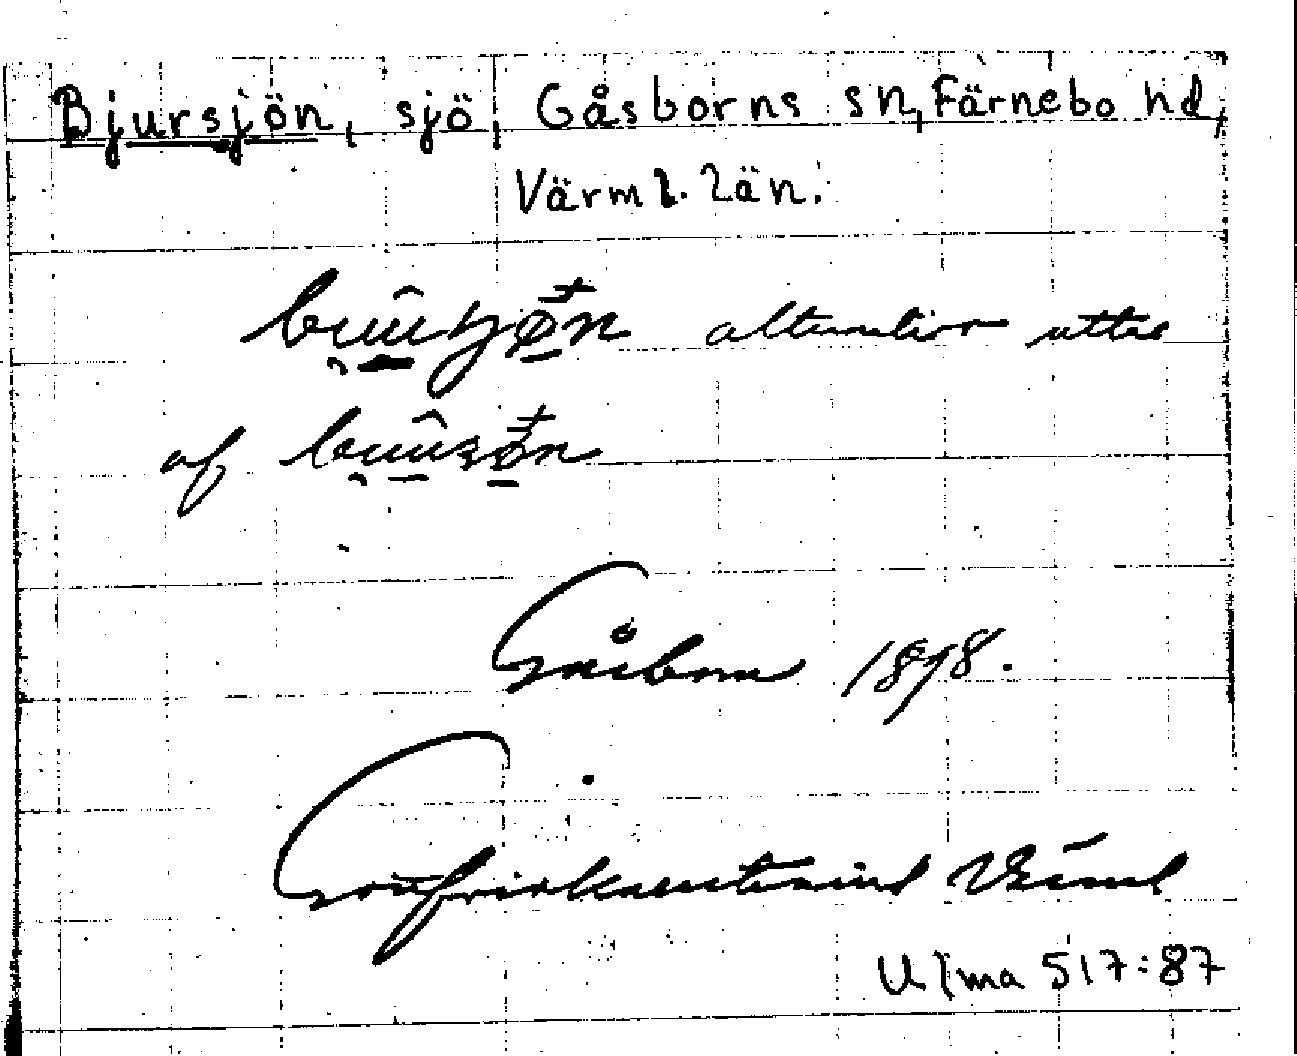 Bjursjön, sjö, Gåsborns sn, Färnebo hd,
Värml. län.
alternativ uttal
af
Gåsborn 1898.
Värml
Ulma 517:87